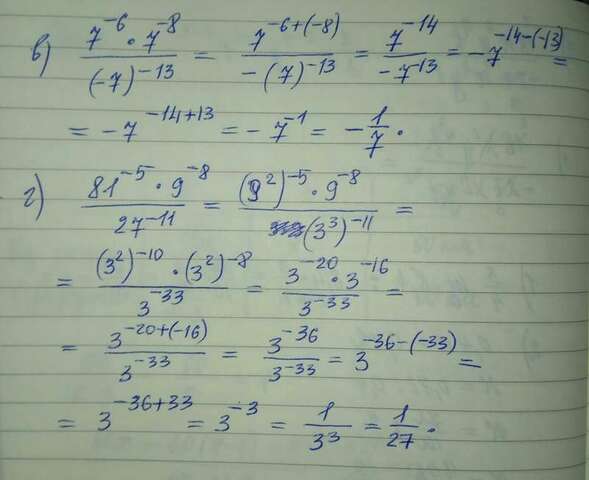 в) (7^-6 · 7^-8)/((-7)^-13) = (7^-6+(-8))/(-(7)^-13) = (7^-14)/(-7^-13) = -7^-14-(-13) =
= -7^-14+13 = -7^-1 = -1/7 .
г) (81^-5 · 9^-8)/(27^-11) = ((9^2)^-5 · 9^-8)/((3^3)^-11) =
= ((3^2)^-10 · (3^2)^-8)/(3^-33) = (3^-20 · 3^-16)/(3^-33) =
= (3^-20+(-16))/(3^-33) = (3^-36)/(3^-33) = 3^-36-(-33) =
= 3^-36+33 = 3^-3 = 1/3^3 = 1/27 .